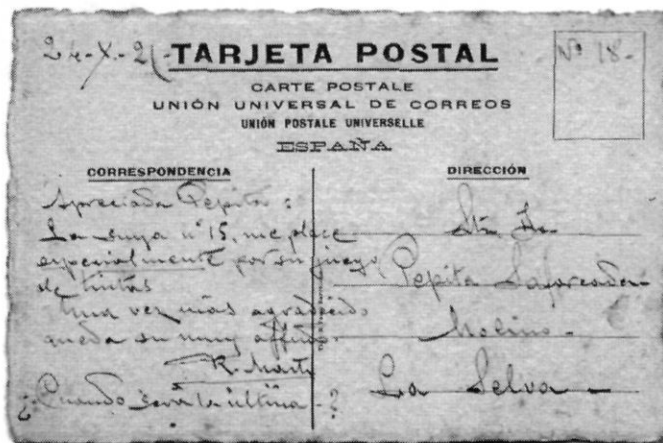 24-X-21-
TARJETA POSTAL
Nº 18-
CARTE POSTALE
UNIÓN UNIVERSAL DE CORREOS
UNIÓN POSTALE UNIVERSELLE
ESPAÑA
CORRESPONDENCIA
Apreciada Pepita:
La suya nº 15, me place
especialmente por su juego
de tintas
Una vez más agradecido
queda su muy affmo.
R. Martí
¿Cuando será la última-?
DIRECCIÓN
Pepita
Molino-
La Selva-